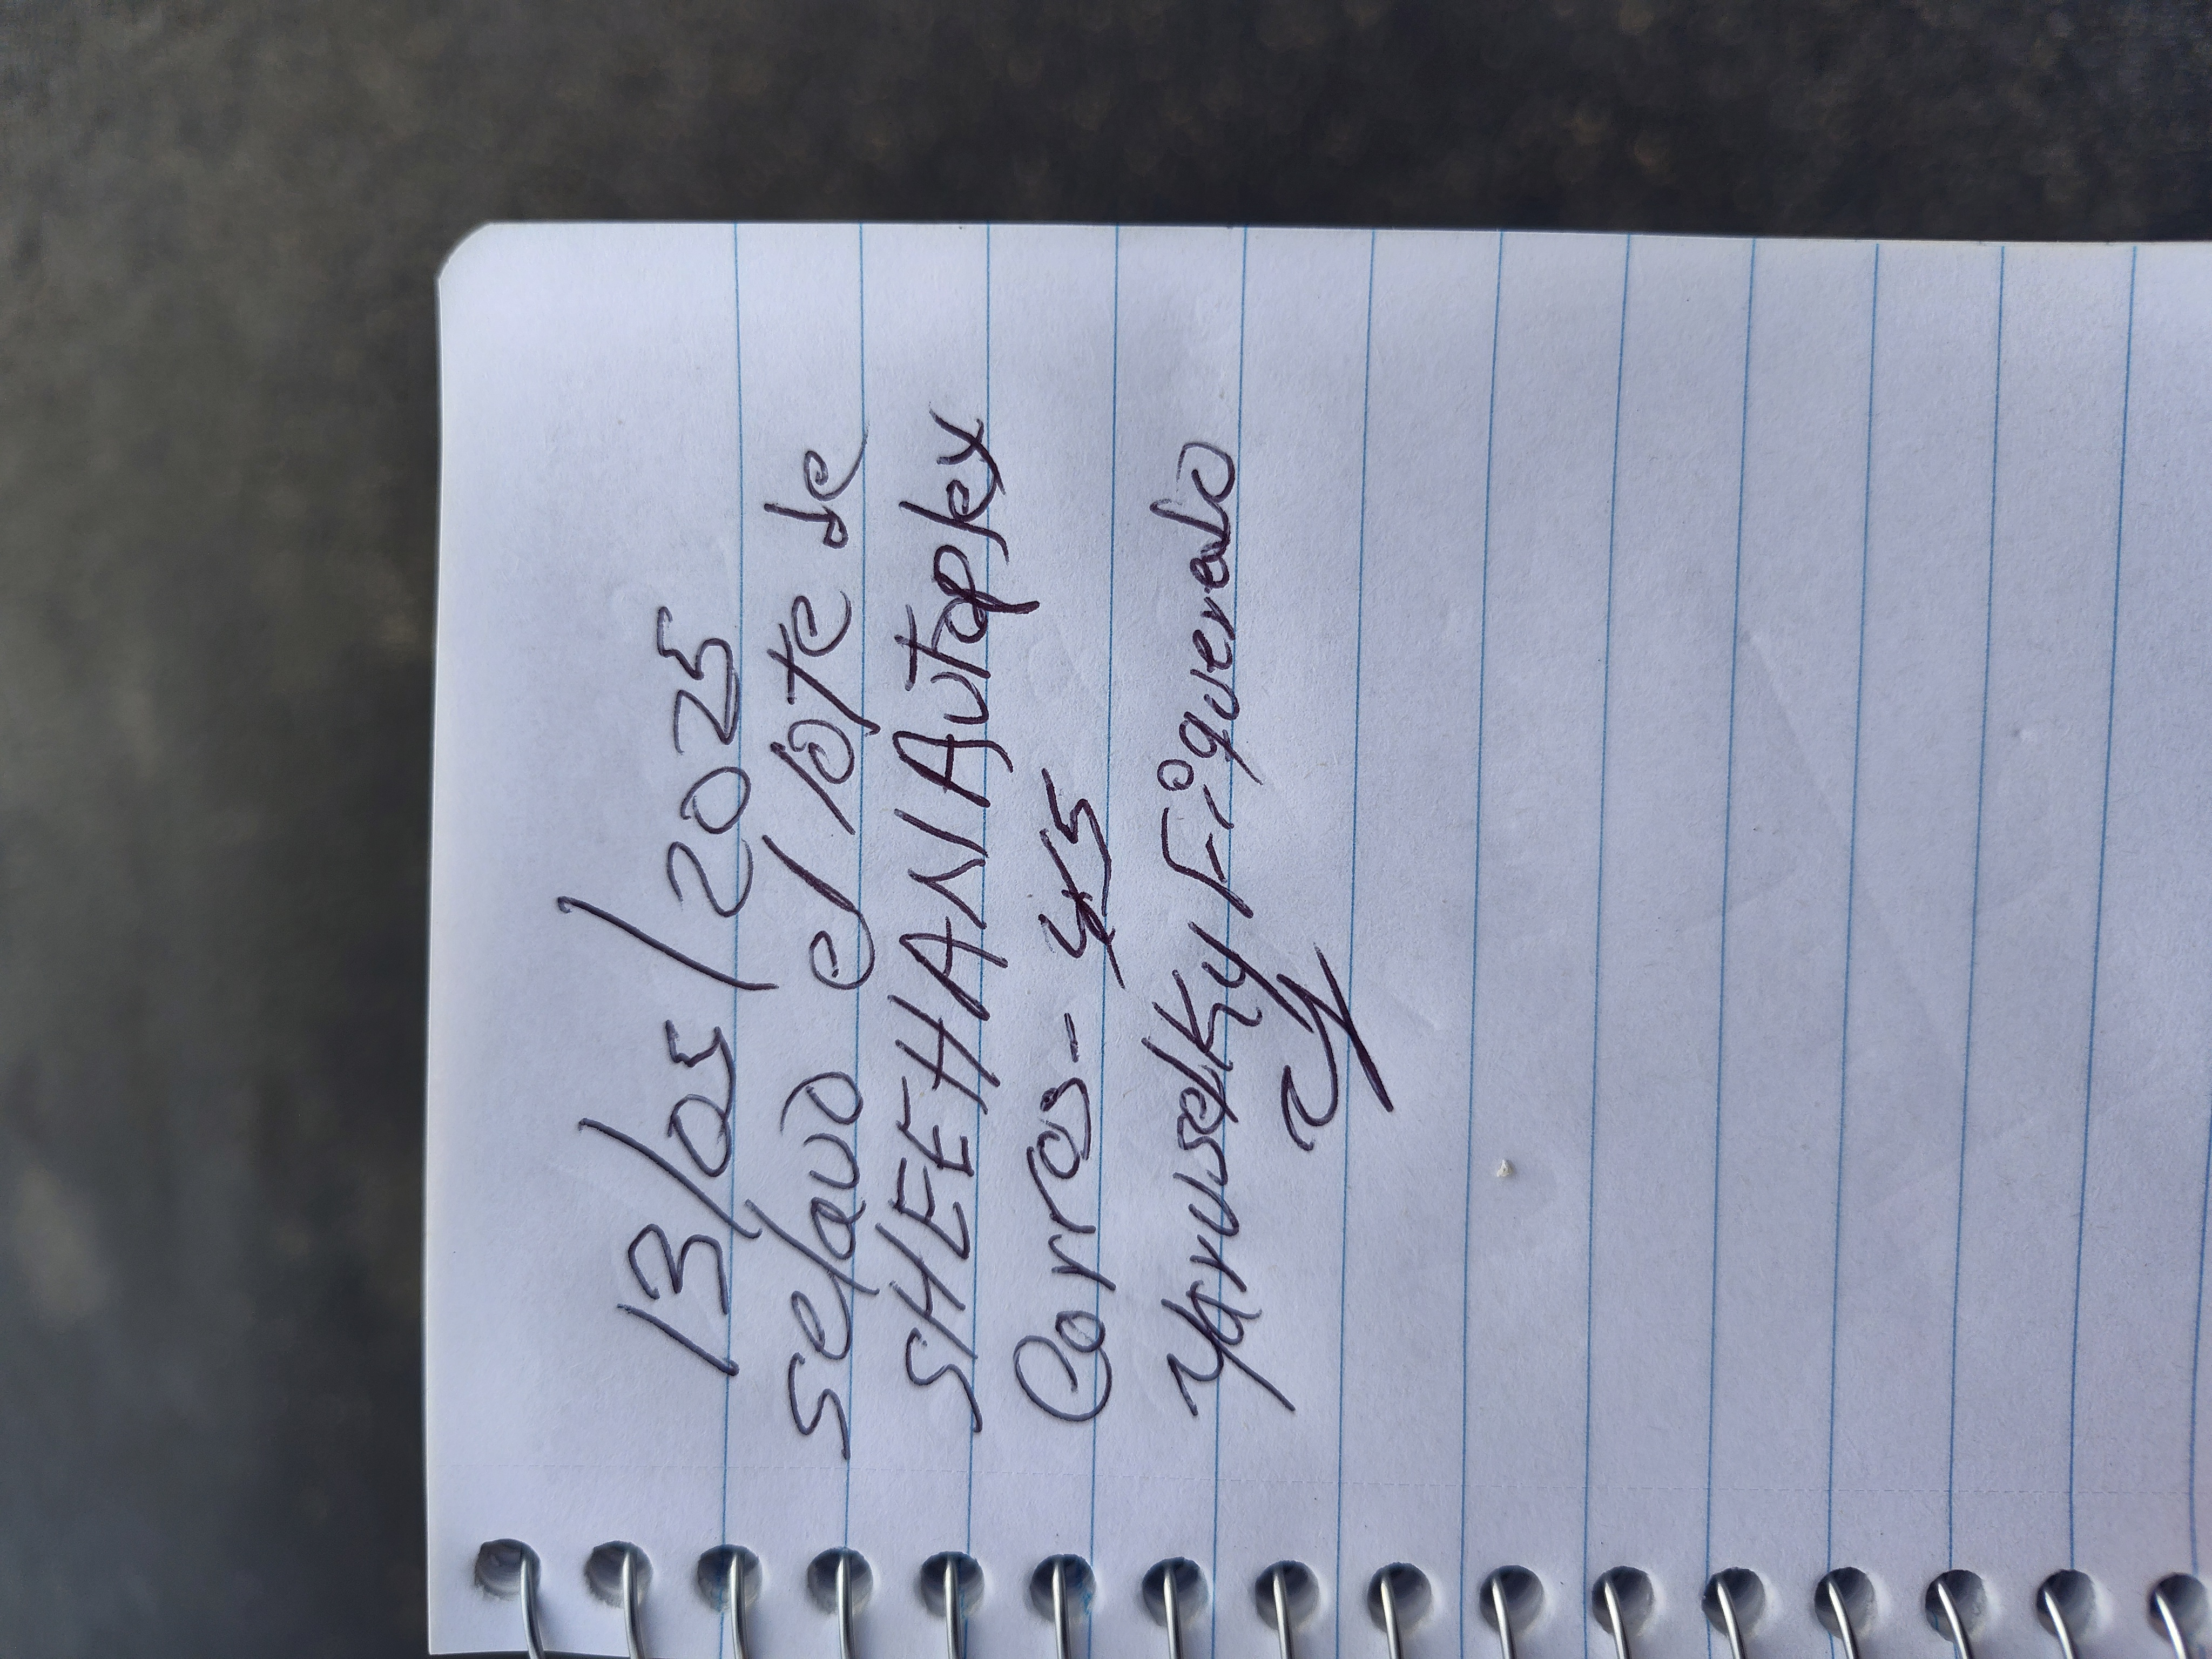 13/05/2025
selavo el lote de
SHEEHAN Autoplex
Carros - 45
Yaruselky Figueredo